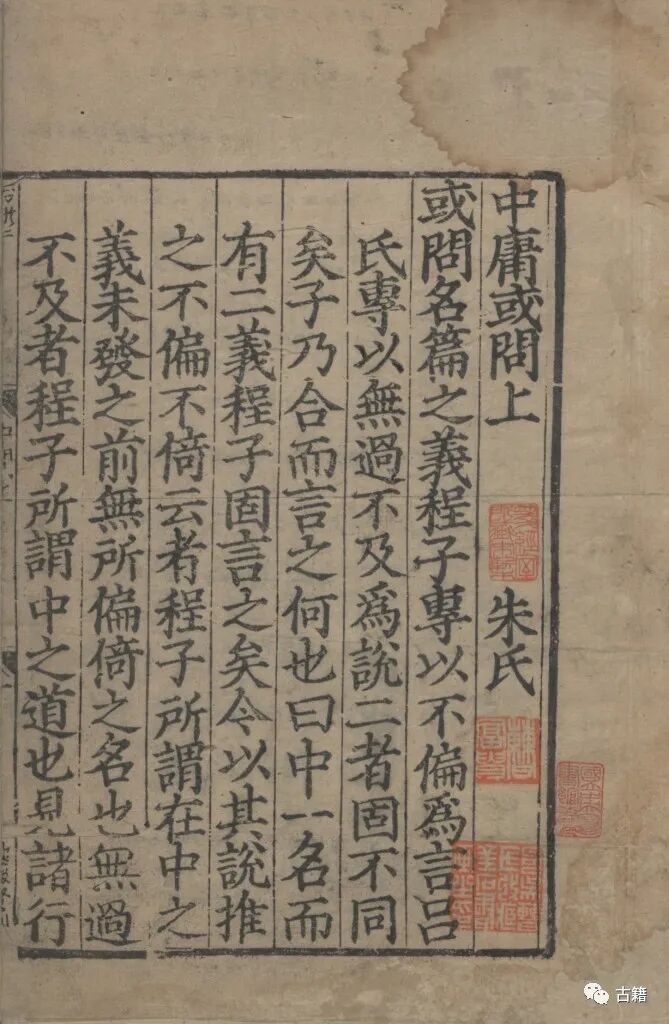 中庸或問上　朱氏
或問名篇之義程子專以不偏為言呂
氏專以無過不及爲說二者固不同
矣子乃合而言之何也曰中一名而
有二義程子固言之矣今以其說推
之不偏不倚云者程子所謂在中之
義未發之前無所偏倚之名也無過
不及者程子所謂中之道也見諸行
古籍